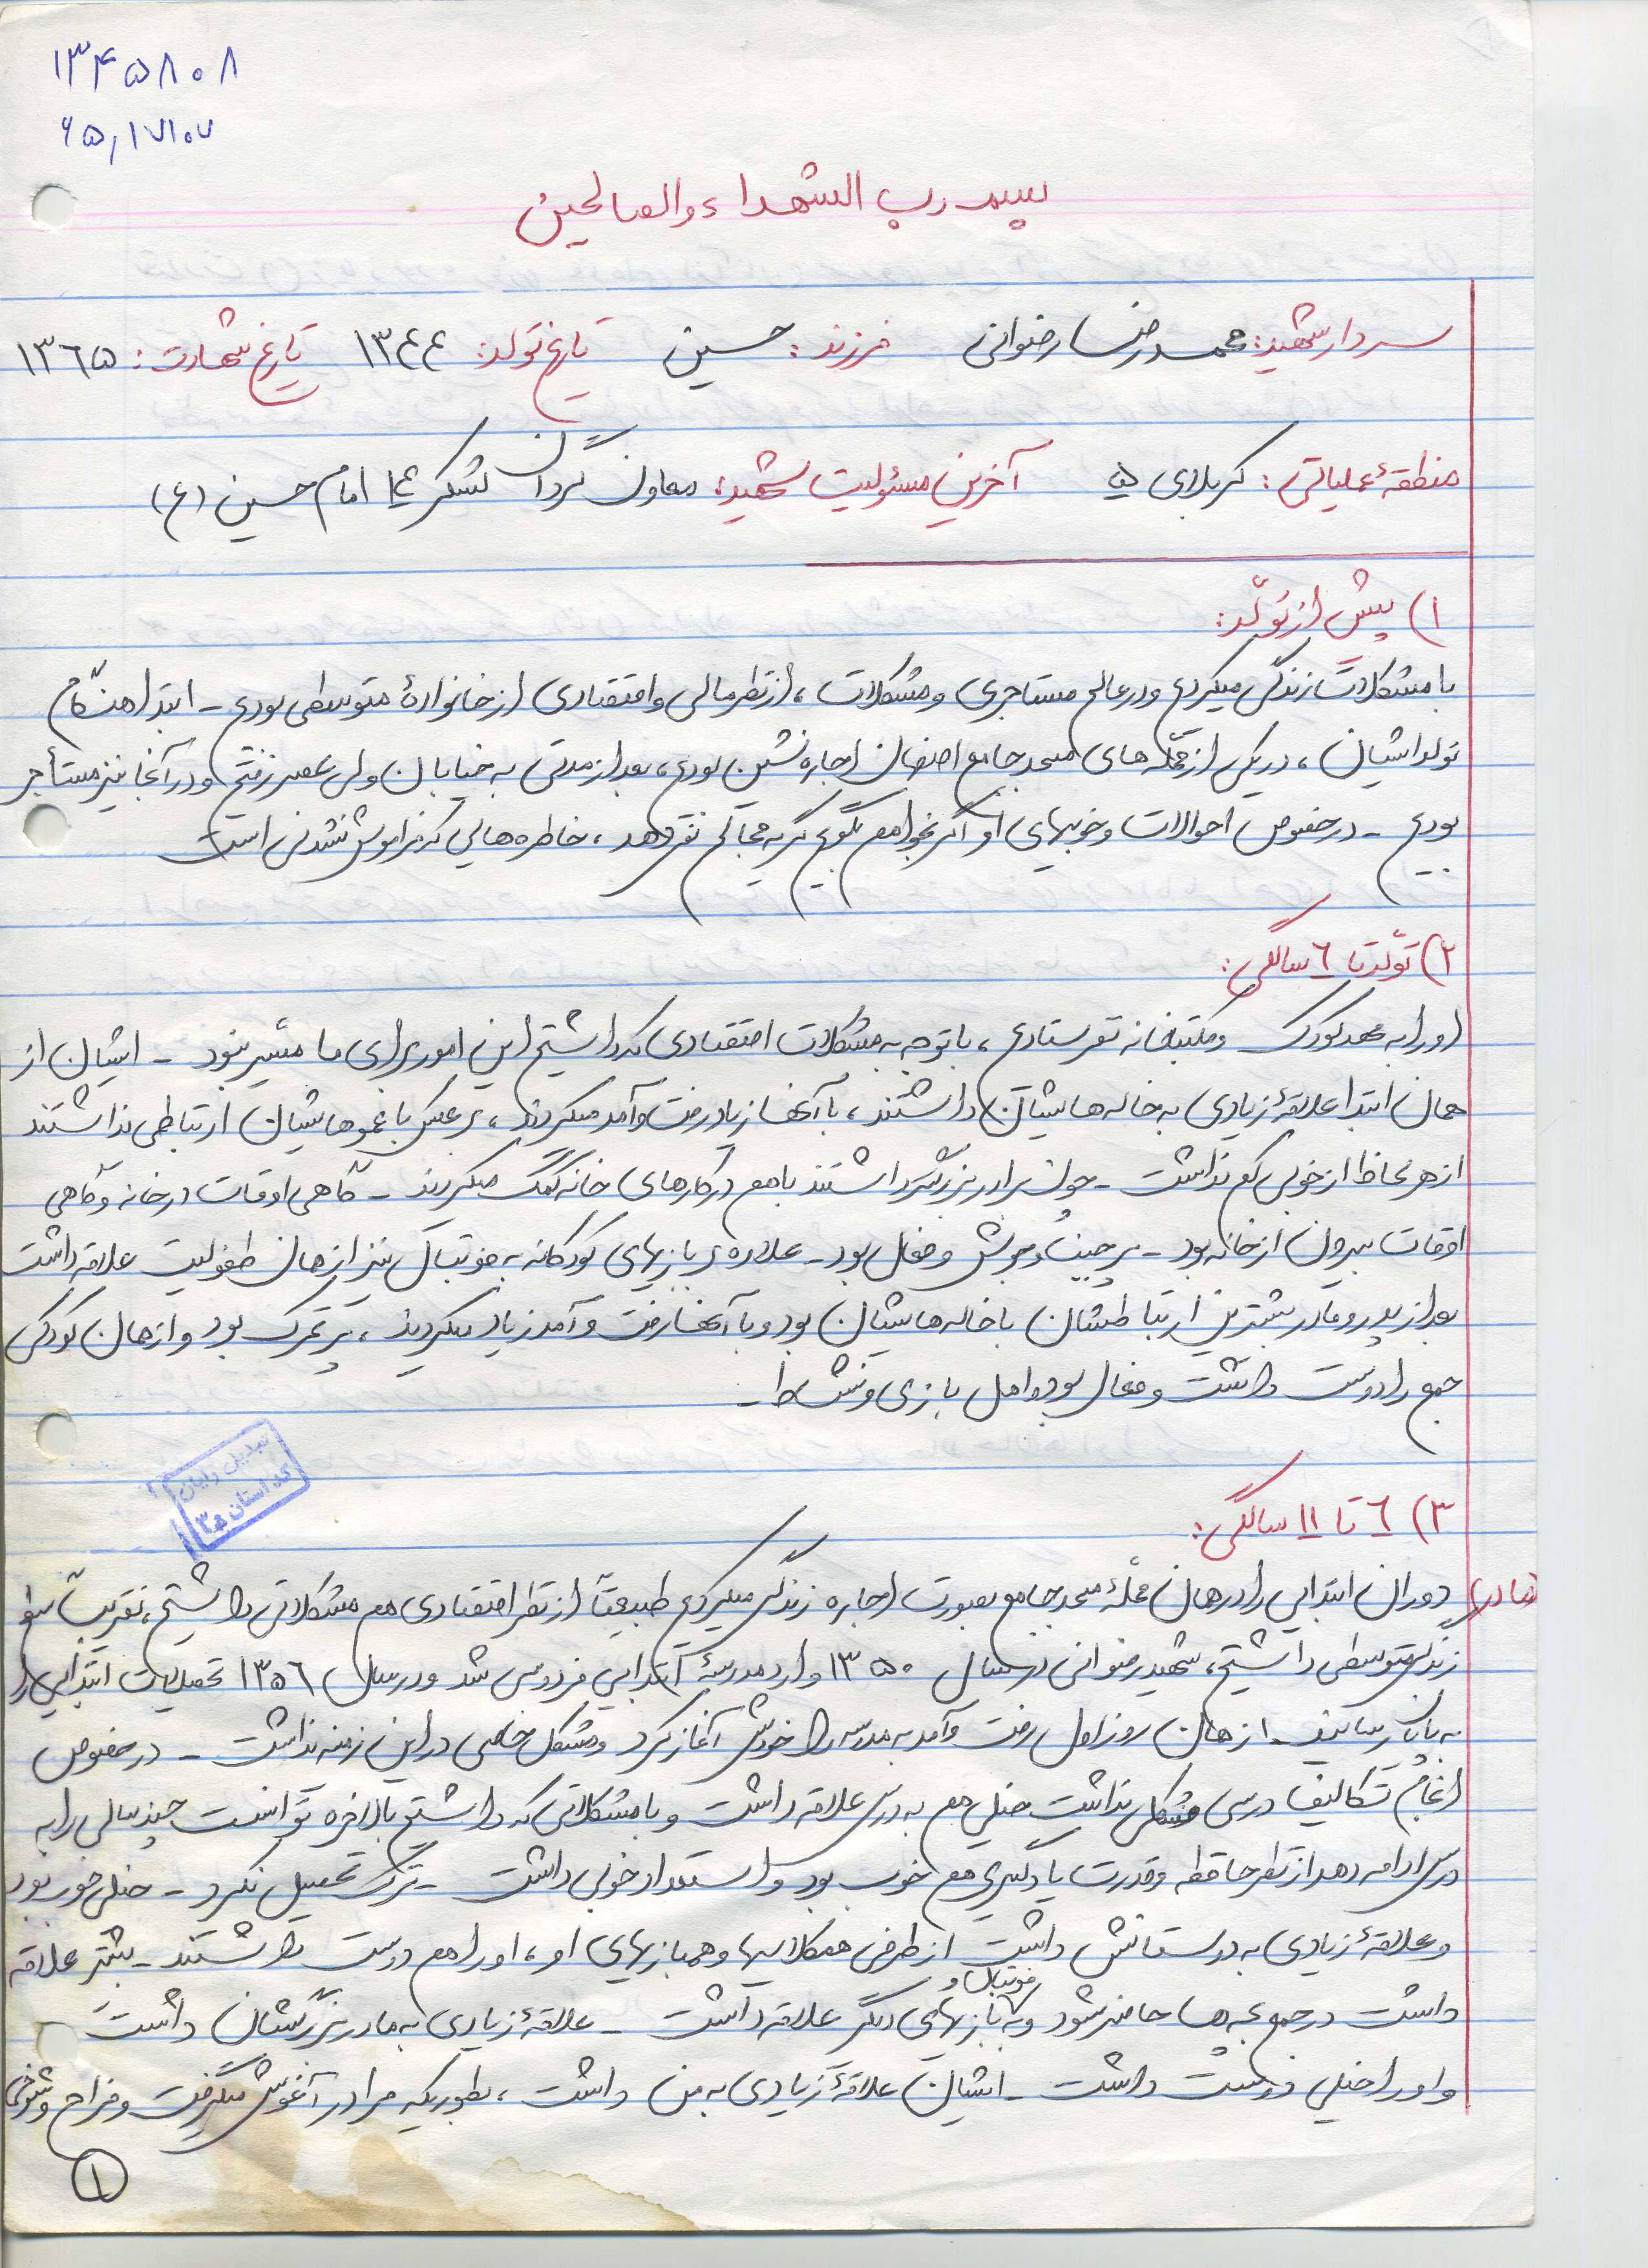 ۱۳۴۵۸۰۸
۶۵,۱۷۱۰۷
بسم رب الشهداء والصالحین
سردار شهید: محمدرضا رضوانی فرزند: حسین تاریخ تولد: ۱۳۴۴ تاریخ شهادت: ۱۳۶۵
منطقهٔ عملیاتی: کربلای ۵ آخرین مسئولیت شهید: معاون گردان لشکر ۱۴ امام حسین (ع)
۱) پیش از تولّد:
با مشکلات زندگی میکردیم و در عالم مستاجری و مشکلات، از نظر مالی و اقتصادی از خانوادهٔ متوسطی بودیم - ابتدا هنگام
تولد ایشان، در یکی از محلّه های مسجد جامع اصفهان اجاره نشین بودیم، بعد از مدتی به خیابان ولی عصر رفتیم و در آنجا نیز مستأجر
بودیم - در خصوص احوالات و خوبیهای او اگر بخواهم بگویم گریه مجالم نمی دهد، خاطره هایی که فراموش نشدنی است
۲) تولّد تا ۶ سالگی:
او را به مهد کودک و مکتبخانه نفرستادیم، با توجه به مشکلات اقتصادی که داشتیم این امور برای ما میسّر نبود - ایشان از
همان ابتدا علاقهٔ زیادی به خاله هایشان داشتند، با آنها زیاد رفت و آمد میکردند، بر عکس با عموهایشان ارتباطی نداشتند
از هر لحاظ از خوبی کم نداشت - چون برادر بزرگتر داشتند باهم در کارهای خانه کمک میکردند - گاهی اوقات در خانه و گاهی
اوقات بیرون از خانه بود - پر جنب و جوش و فعال بود - علاوه بر بازیهای کودکانه به فوتبال نیز از همان طفولیت علاقه داشت
بعد از پدر و مادر بیشترین ارتباطشان با خاله هایشان بود و با آنها رفت و آمد زیاد میکردند، پر تحرک بود و از همان کودکی
جمع را دوست داشت و فعال بود و اهل بازی و نشاط -
تبدیل رایان
کد استان ۳۵
۳) ۶ تا ۱۱ سالگی:
(مادر) دوران ابتدایی را در همان محلهٔ مسجد جامع بصورت اجاره زندگی میکردیم طبیعتاً از نظر اقتصادی هم مشکلاتی داشتیم، تقریباً
زندگی متوسطی داشتیم، شهید رضوانی در سال ۱۳۵۰ وارد مدرسهٔ ابتدایی فردوسی شد و در سال ۱۳۵۶ تحصیلات ابتدایی را
به پایان رسانید - از همان روز اول رفت و آمد به مدرسه را خودش آغاز کرد و مشکل خاصی در این زمینه نداشت - در خصوص
انجام تکالیف درسی مشکلی نداشت خیلی هم به درس علاقه داشت و با مشکلاتی که داشتیم بالاخره توانست چند سالی را به
درس ادامه دهد از نظر حافظه و قدرت یادگیری هم خوب بود و استعداد خوبی داشت - ترک تحصیل نکرد - خیلی خوب بود
و علاقهٔ زیادی به دوستانش داشت از طرفی همکلاسیها و همبازیهای او، او را هم دوست داشتند - بیشتر علاقه
داشت در جمع بچه ها حاضر شود و به فوتبال و بازیهای دیگر علاقه داشت - علاقهٔ زیادی به مادر بزرگشان داشت
و او را خیلی دوست داشت - ایشان علاقهٔ زیادی به من داشت، بطوریکه مرا در آغوش میگرفت و مزاح و شوخی
۱